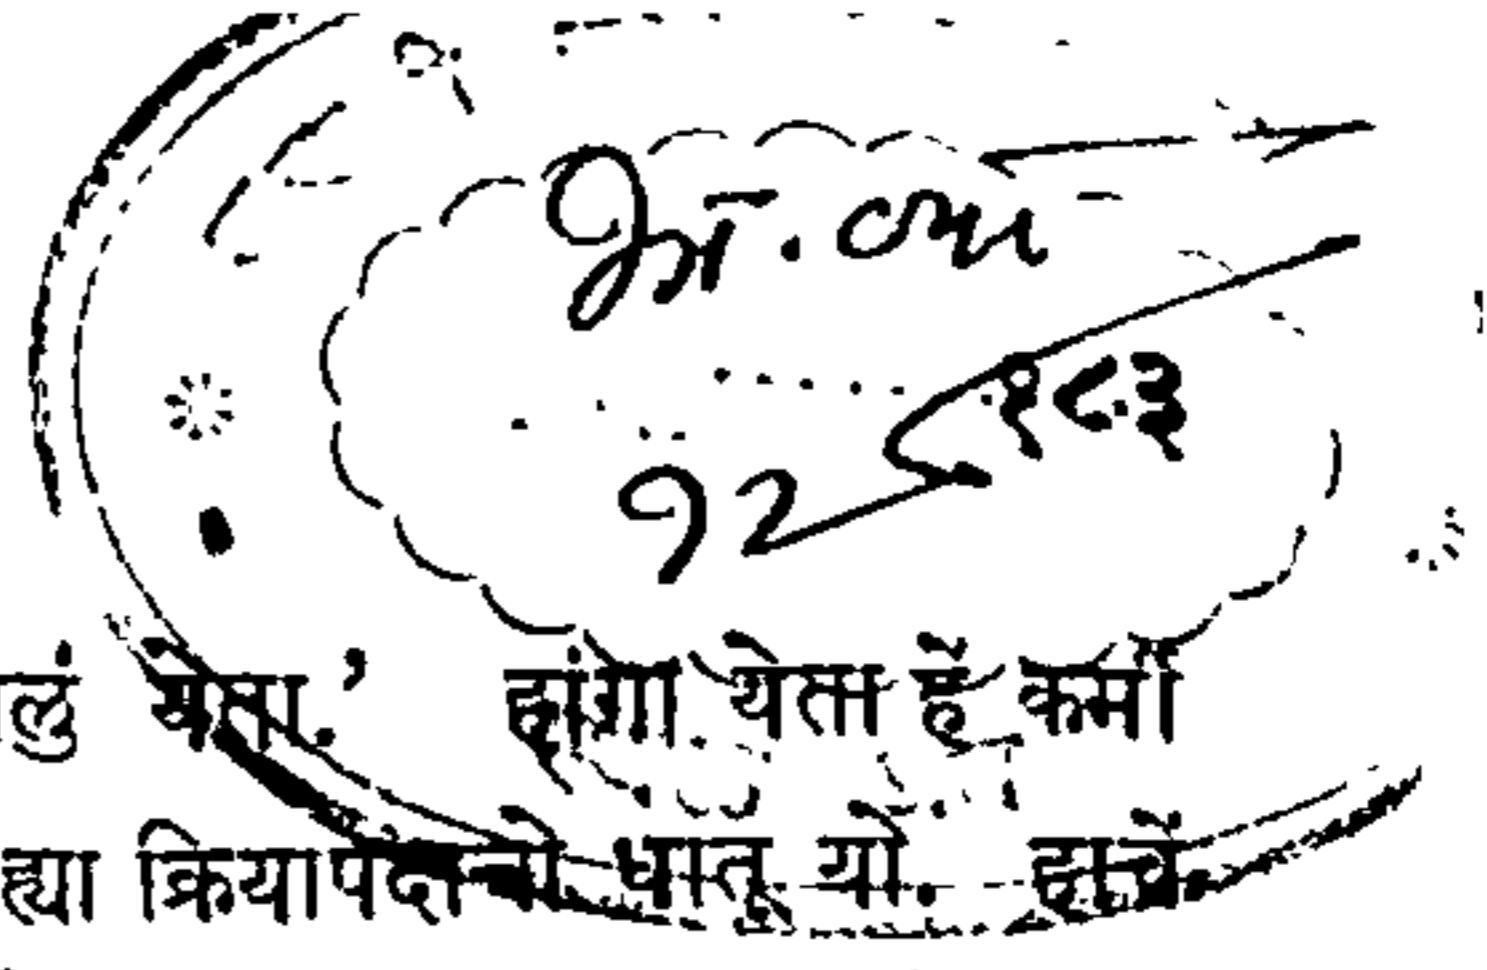 १८३
१२
लुं येता.’ ह्यांगा येता हें कर्मी
ह्या क्रियापदाचो धातू यो. ह्याचें